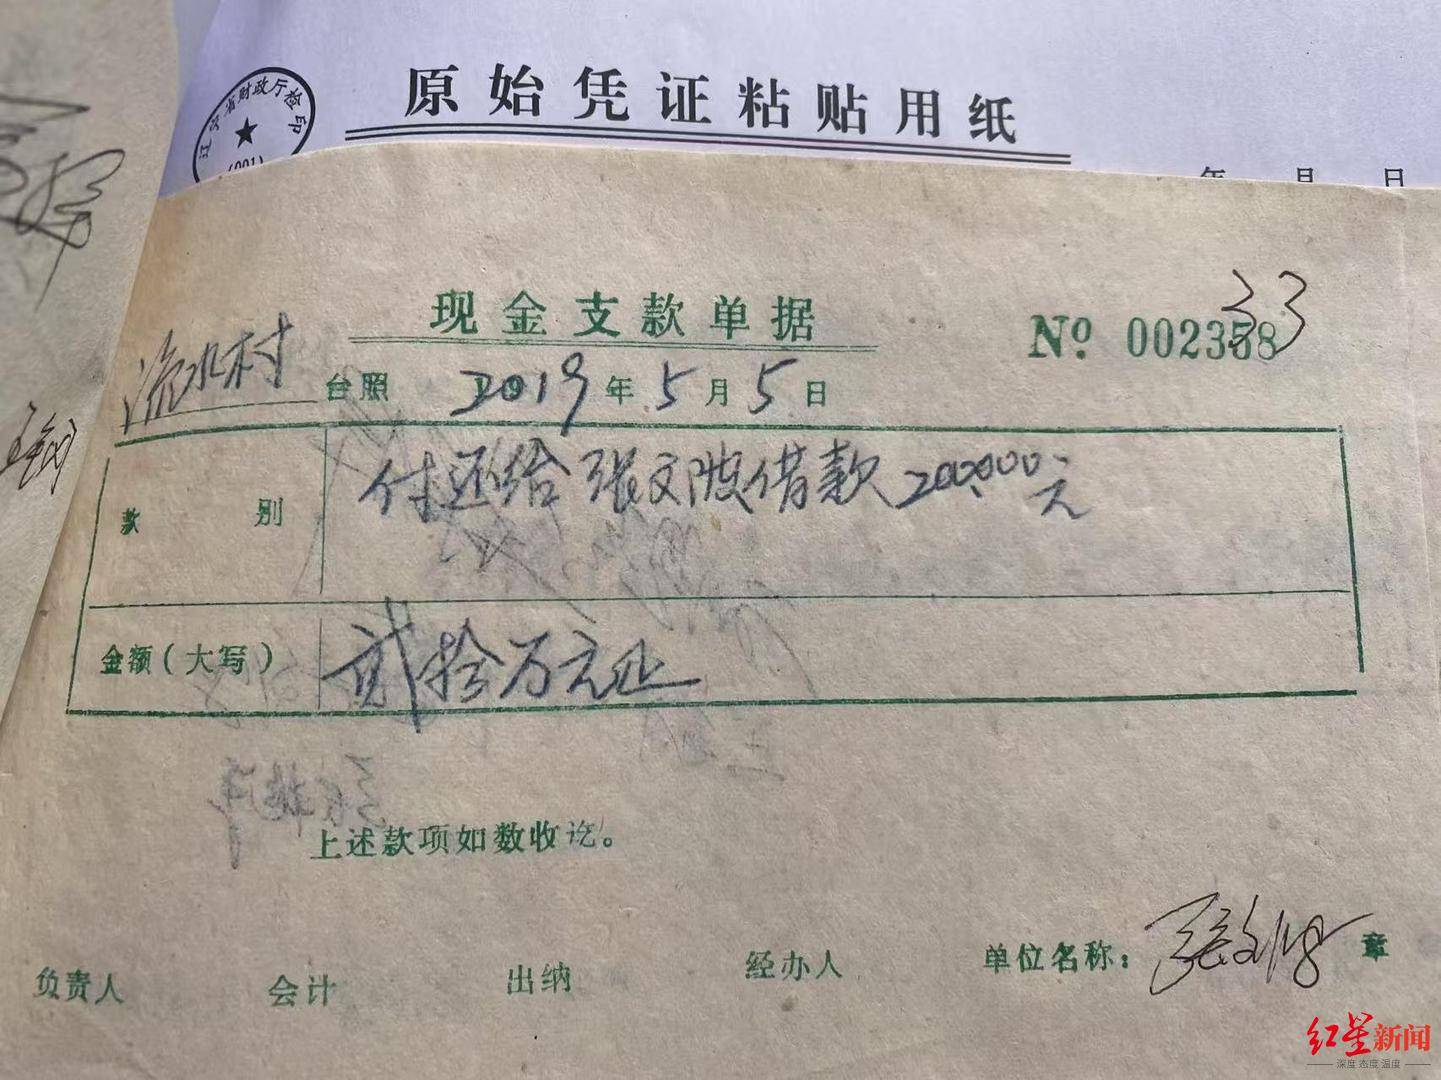 原始凭证粘贴用纸
辽宁省财政厅检印
(001)
年 月 日
现金支款单据
No. 002358
33
流水村 台照 2019年5月5日
款 别 付还给张文波借款200000元
金额(大写) 贰拾万元正
上述款项如数收讫。
负责人 会计 出纳 经办人 单位名称: 张文波 章
红星新闻
深度 态度 温度